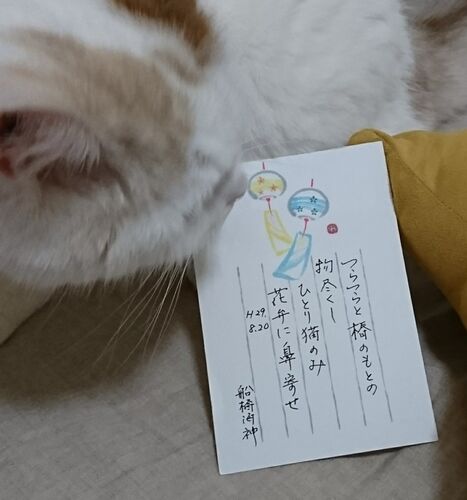 つらつらと椿のもとの
物尽くし
ひとり猫のみ
花弁に鼻寄せ
H29.
8.20
船橋海神